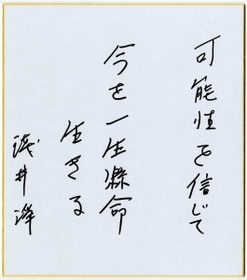 可能性を信じて
今を一生懸命
生きる
浅井峰